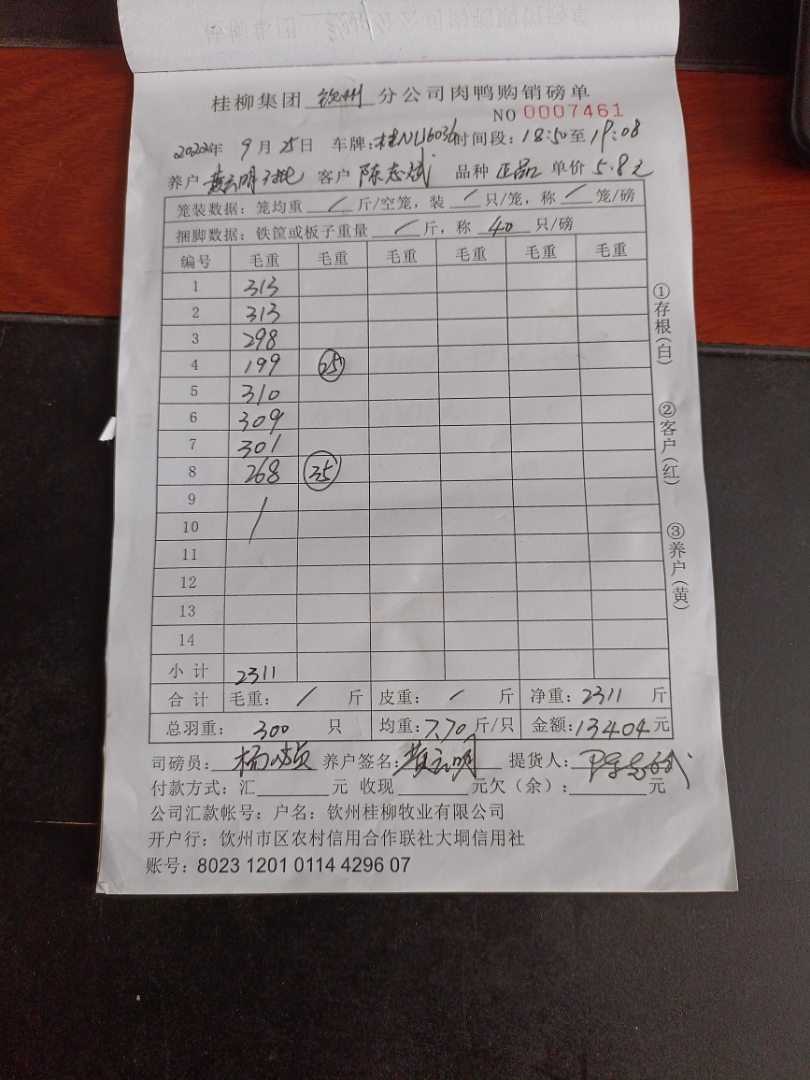 桂柳集团 钦州 分公司肉鸭购销磅单
NO 0007461
2022年 9月 25日 车牌:桂NU6036 时间段:18:50至19:08
养户 黄云明 客户 陈志斌 品种 正品 单价 5.8元
笼装数据:笼均重 / 斤/空笼,装 / 只/笼,称 / 笼/磅
捆脚数据:铁筐或板子重量 / 斤,称 40 只/磅
编号 毛重 毛重 毛重 毛重 毛重 毛重
1 313
2 313
3 298
4 199 25
5 310
6 309
7 301
8 268 35
9 /
10
11
12
13
14
小计 2311
合计 毛重: / 斤 皮重: / 斤 净重:2311 斤
总羽重: 300 只 均重:7.70 斤/只 金额:13404元
司磅员: 养户签名:黄云明 提货人:陈志斌
付款方式:汇 元 收现 元欠(余): 元
公司汇款帐号:户名:钦州桂柳牧业有限公司
开户行:钦州市区农村信用合作联社大垌信用社
账号:8023 1201 0114 4296 07
①存根(白)
②客户(红)
③养户(黄)